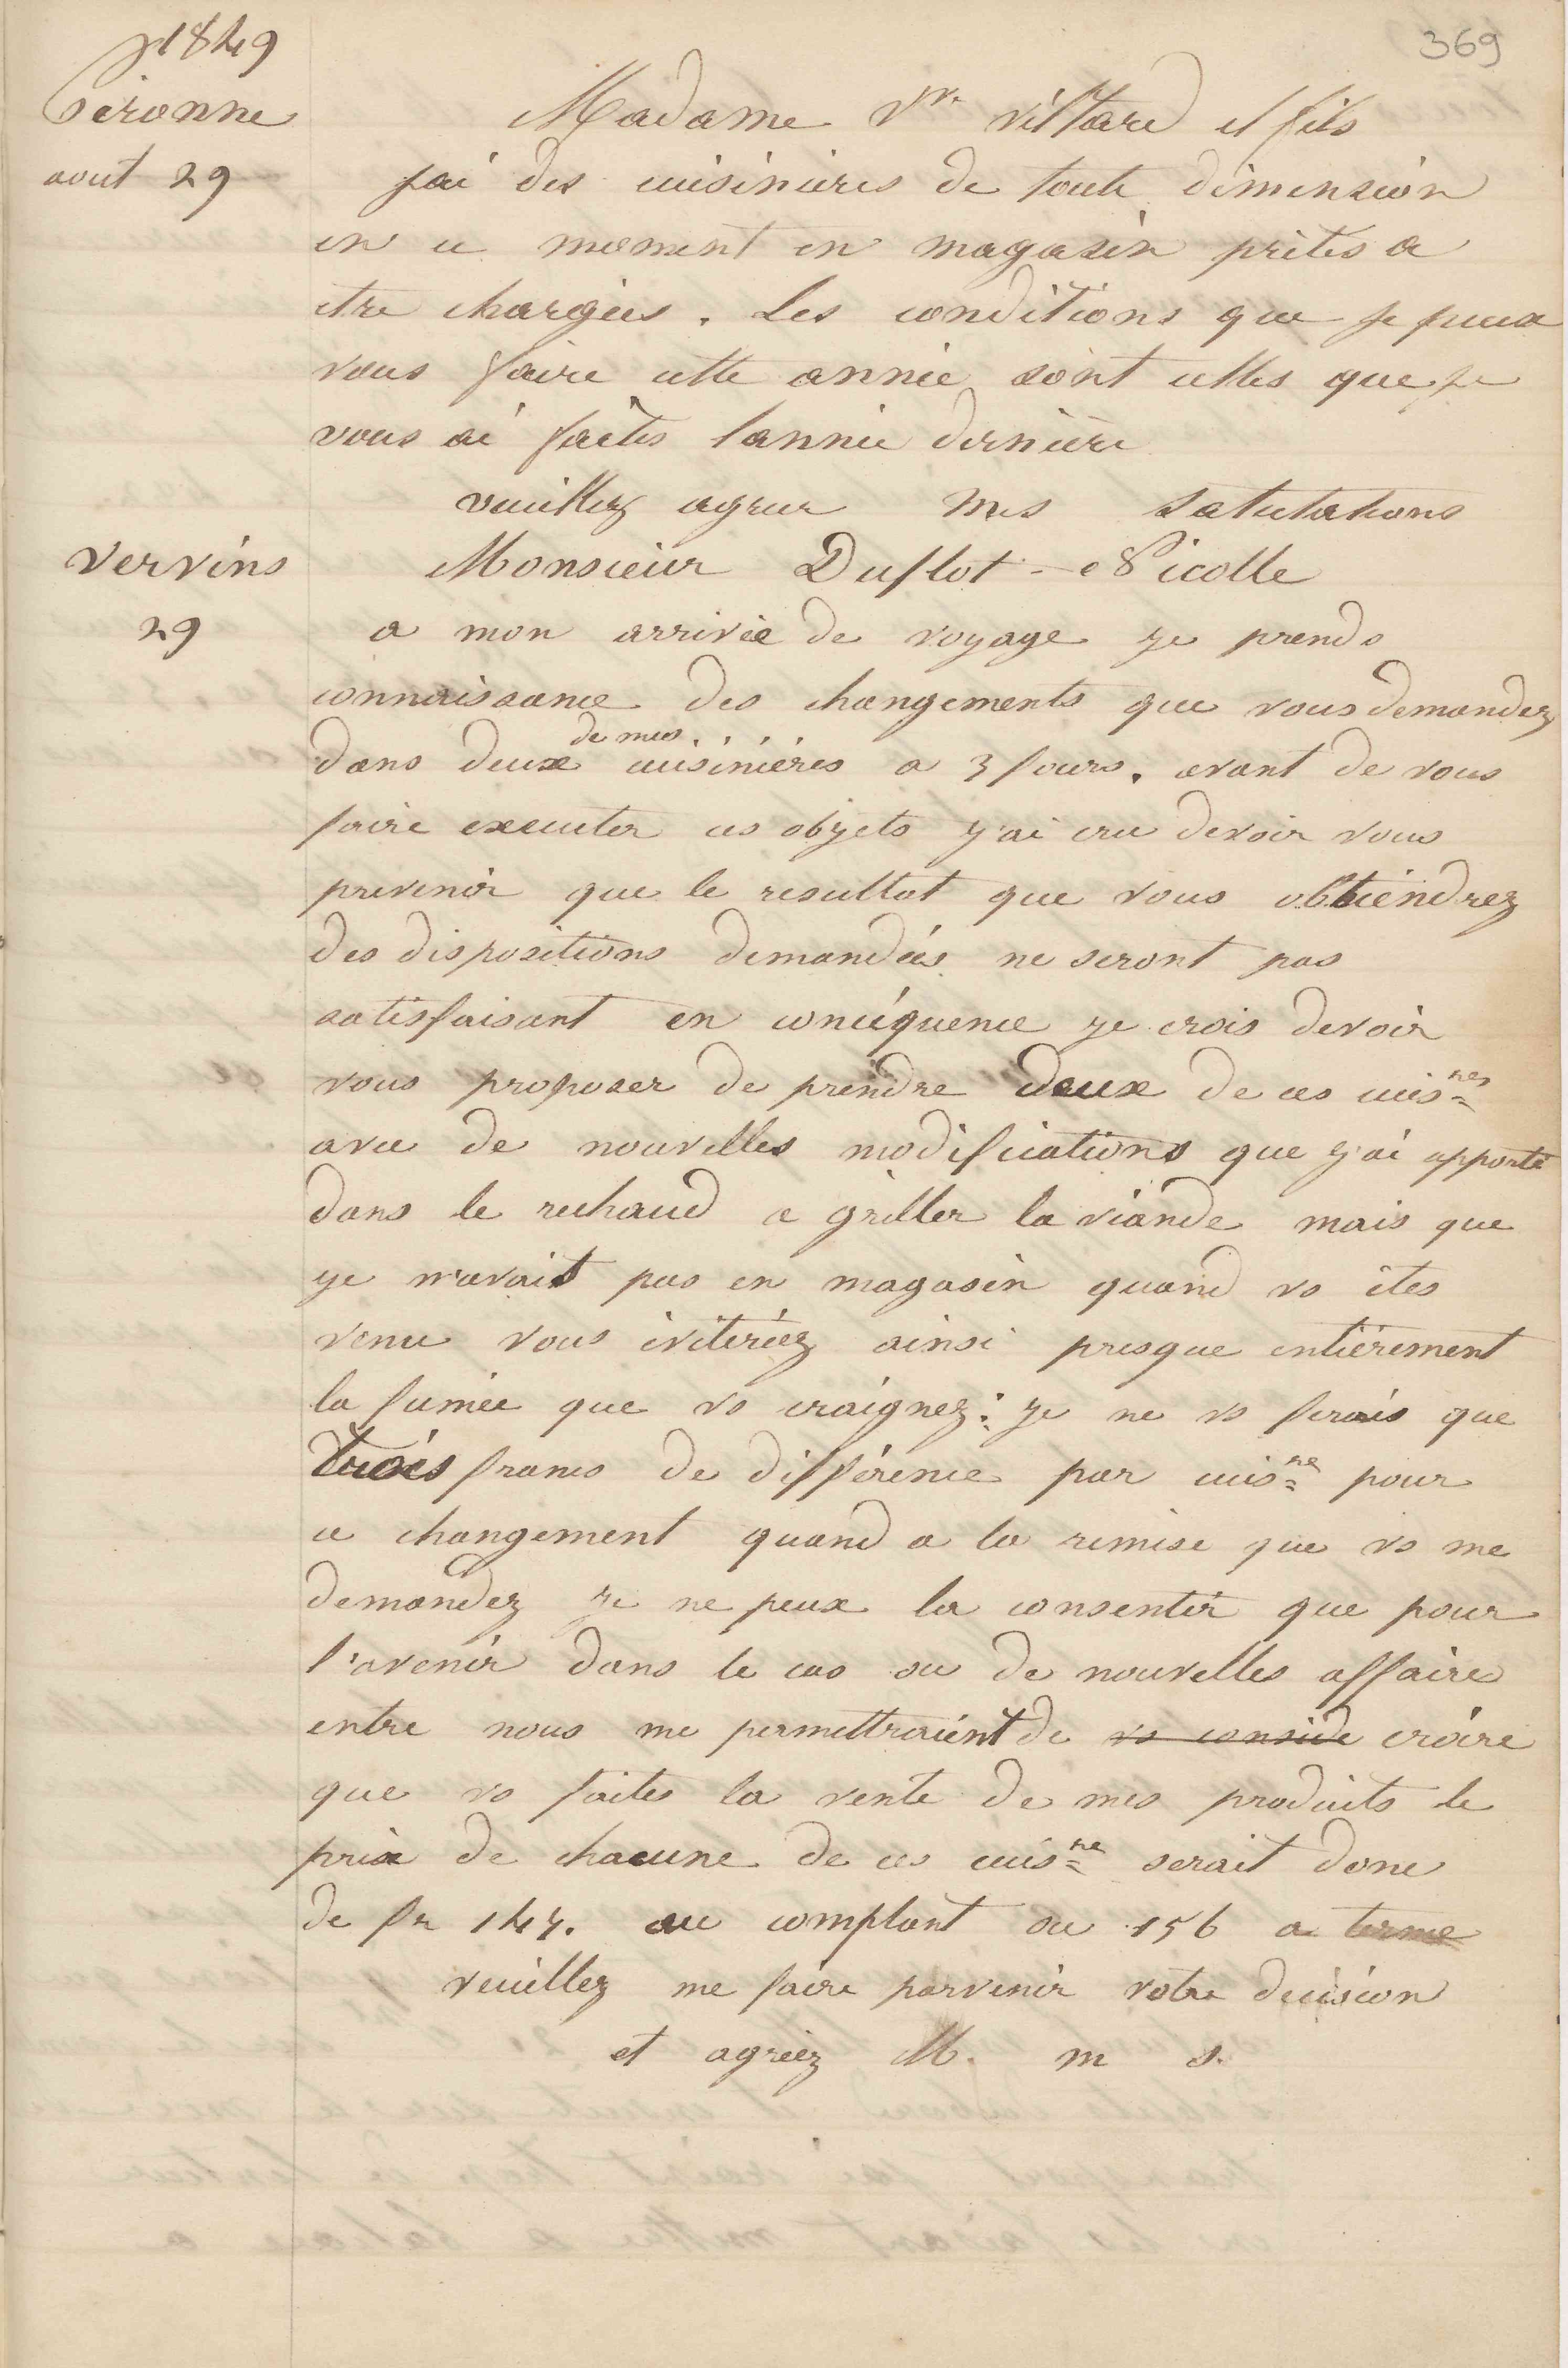 1849
369
Péronne
aout 29
Madame Vve villard et fils
jai des cuisinieres de toute dimension
en ce moment en magasin prètes a
etre chargées. Les conditions que je peux
vous faire cette année sont celles que je
vous ai faites lannée dernière
veuillez agreer mes salutations
Vervins
29
Monsieur Duflot-Picolle
a mon arrivée de voyage je prends
connaissance des changements que vous demandez
dans deux de mes cuisinières a 3 fours. avant de vous
faire executer ces objets j'ai cru devoir vous
prevenir que le resultat que vous obtiendrez
des dispositions demandées ne seront pas
satisfaisant en concéquence je crois devoir
vous proposer de prendre deux de ces cuisnes
avec de nouvelles modifications que j'ai apporté
dans le rechaud a griller la viande mais que
je n'avait pas en magasin quand vs ètes
venu vous èviteriez ainsi presque entièrement
la fumée que vs craignez: je ne vs ferais que
trois francs de différence par cuisne pour
ce changement quand a la remise que vs me
demandez je ne peux la consentir que pour
l'avenir dans le cas ou de nouvelles affaires
entre nous me permettraient de vs conside croire
que vs faites la vente de mes produits le
prix de chacune de ces cuisne serait donc
de fr 147. au comptant ou 156 a terme
veuillez me faire parvenir votre décision
et agréez M. m s.